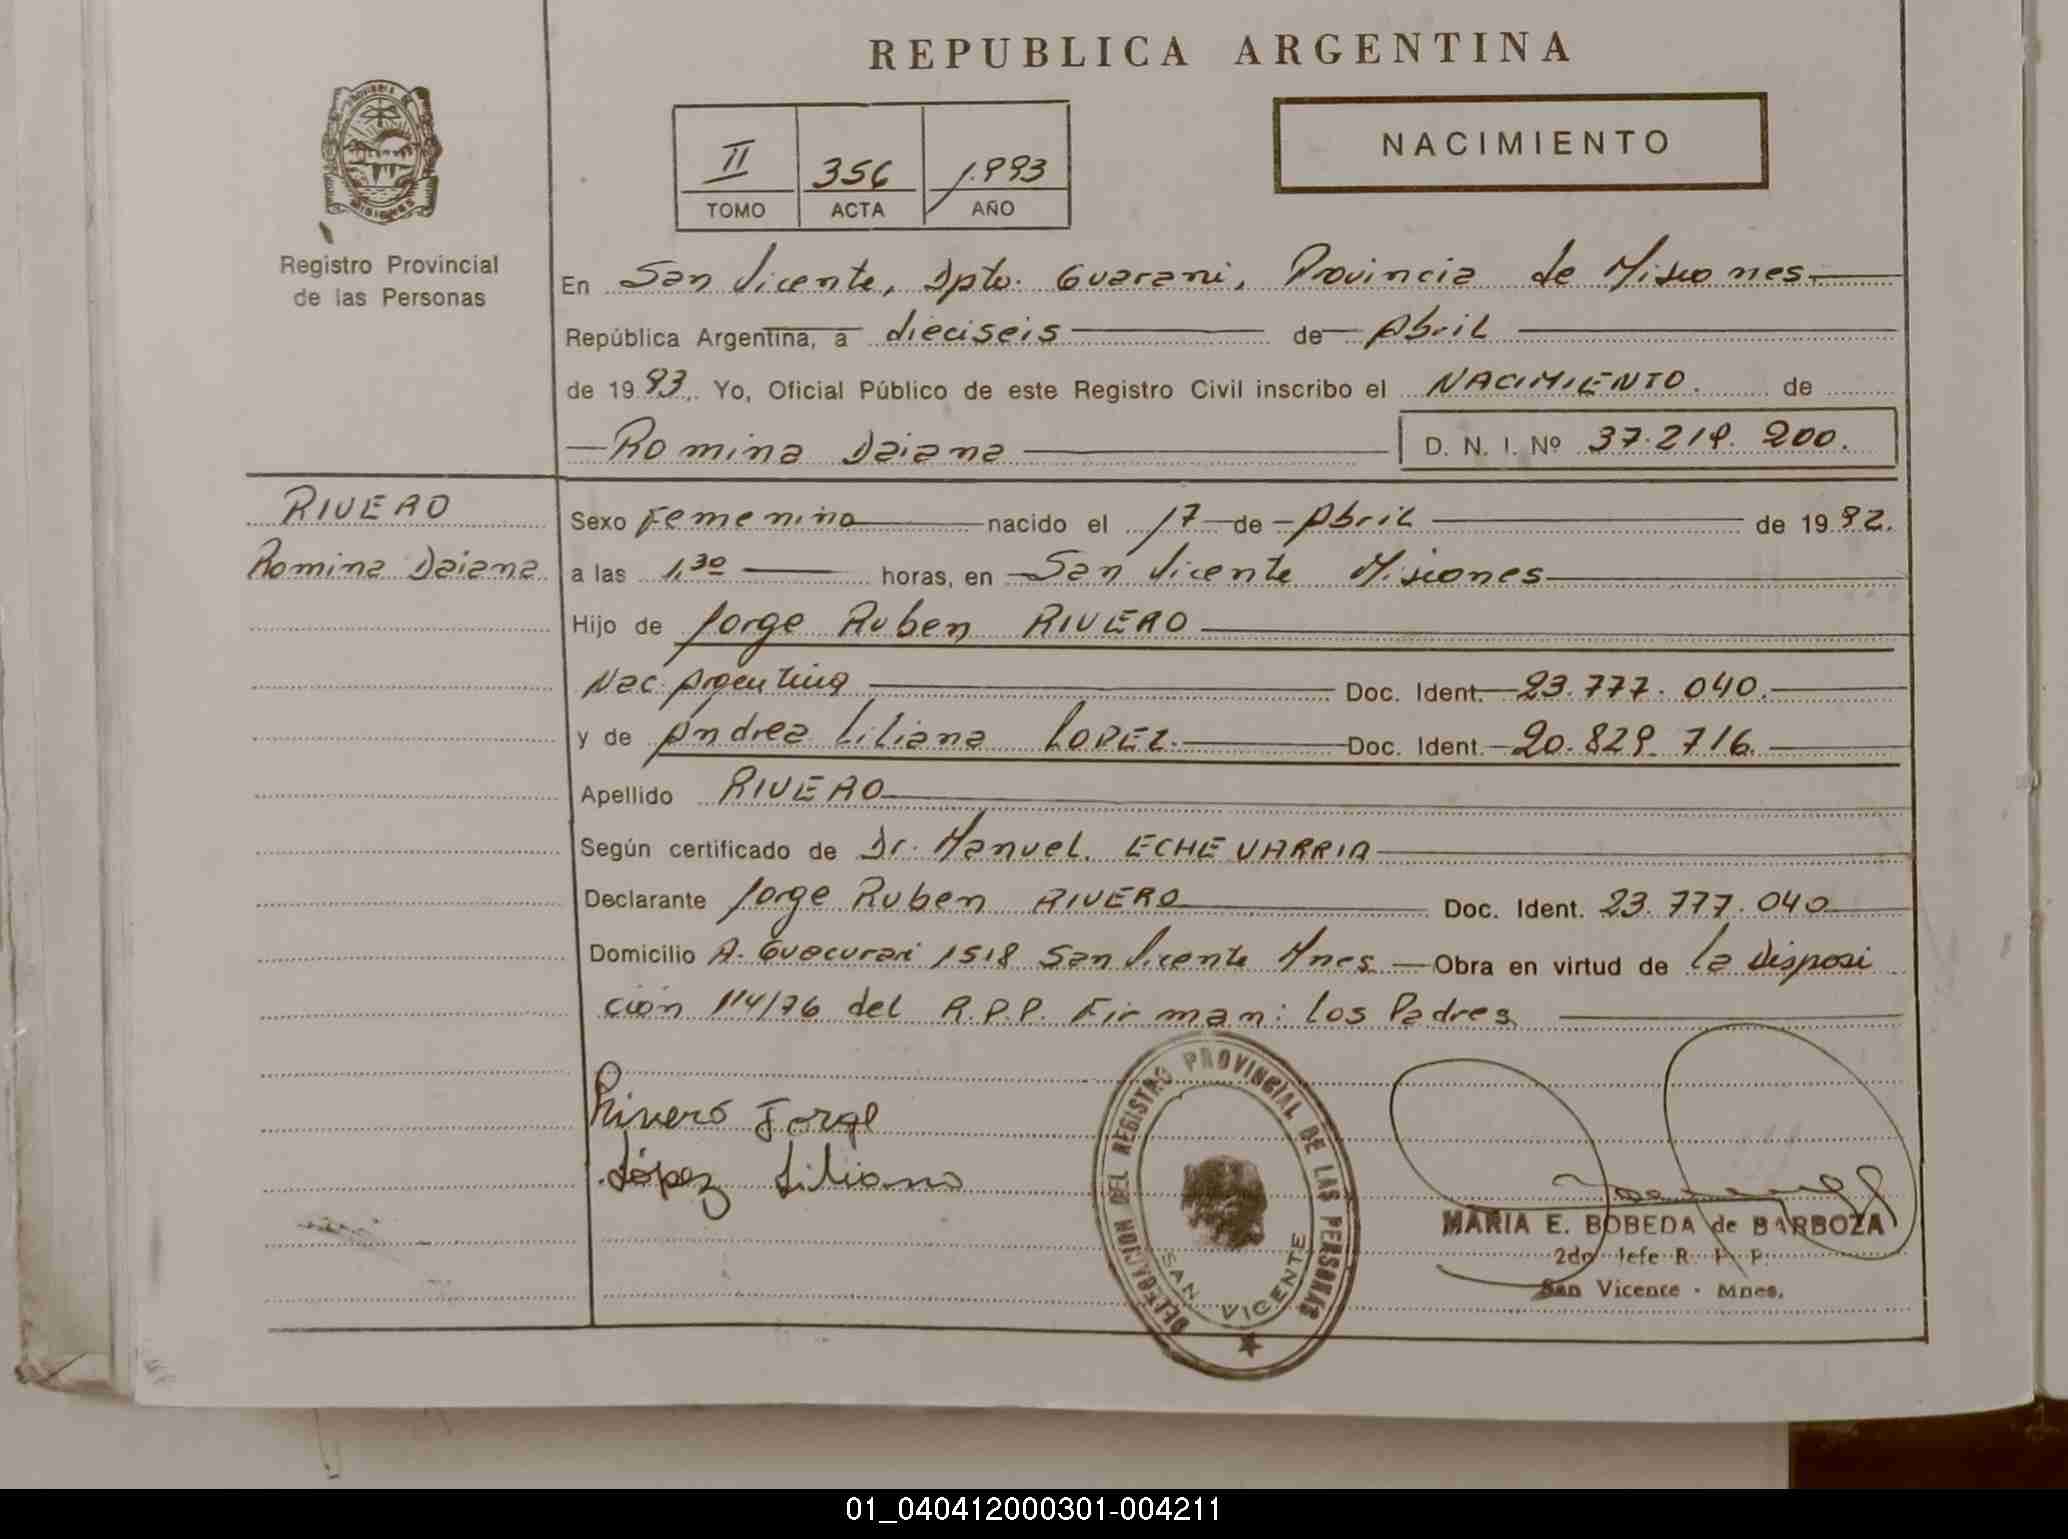 REPUBLICA ARGENTINA
NACIMIENTO
II 356 1.993
TOMO ACTA AÑO
PROVINCIA DE
MISIONES
Registro Provincial
de las Personas
En San Vicente, Dpto. Guarani, Provincia de Misiones
República Argentina, a dieciseis de Abril
de 1993. Yo, Oficial Público de este Registro Civil inscribo el NACIMIENTO. de
Romina Daiana D. N. I. Nº 37.219.200.
RIVERO
Romina Daiana
Sexo Femenino nacido el 17 de Abril de 1992.
a las 1,30 horas, en San Vicente Misiones
Hijo de Jorge Ruben RIVERO
Nac. Argentina Doc. Ident. 23.777.040.
y de Andrea Liliana LOPEZ. Doc. Ident. 20.829.716.
Apellido RIVERO
Según certificado de Dr. Manuel ECHEVARRIA
Declarante Jorge Ruben RIVERO Doc. Ident. 23.777.040
Domicilio A. Guacurari 1518 San Vicente Mnes. Obra en virtud de la Disposi
ción 114/76 del R.P.P. Firman: los Padres
Rivero Jorge
López Liliana
DELEGACION DEL REGISTRO PROVINCIAL DE LAS PERSONAS
SAN VICENTE
MARIA E. BOBEDA de BARBOZA
2do Jefe R. P. P.
San Vicente - Mnes.
01_040412000301-004211